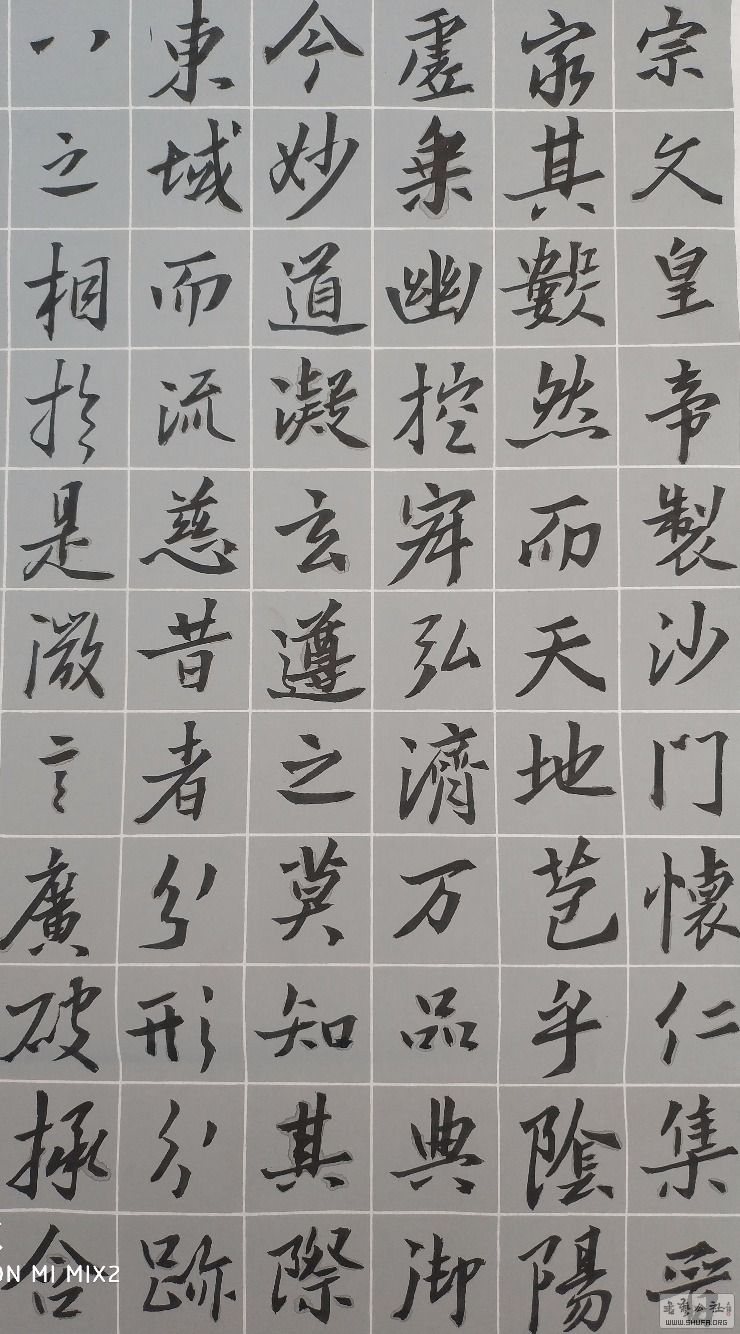 宗文皇帝製沙門懷仁集晉
窮其數然而天地苞乎陰陽
虛乘幽控寂弘濟万品典御
今妙道凝玄遵之莫知其際
東域而流慈昔者分形分跡
八之相於是微言廣被拯含
ON MI MIX2
WWW.SHUFA.ORG